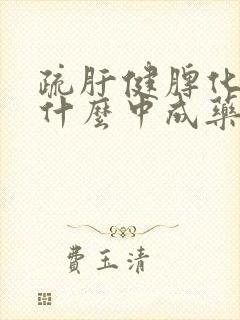 疏肝健脾化
什麼中成藥
費玉清